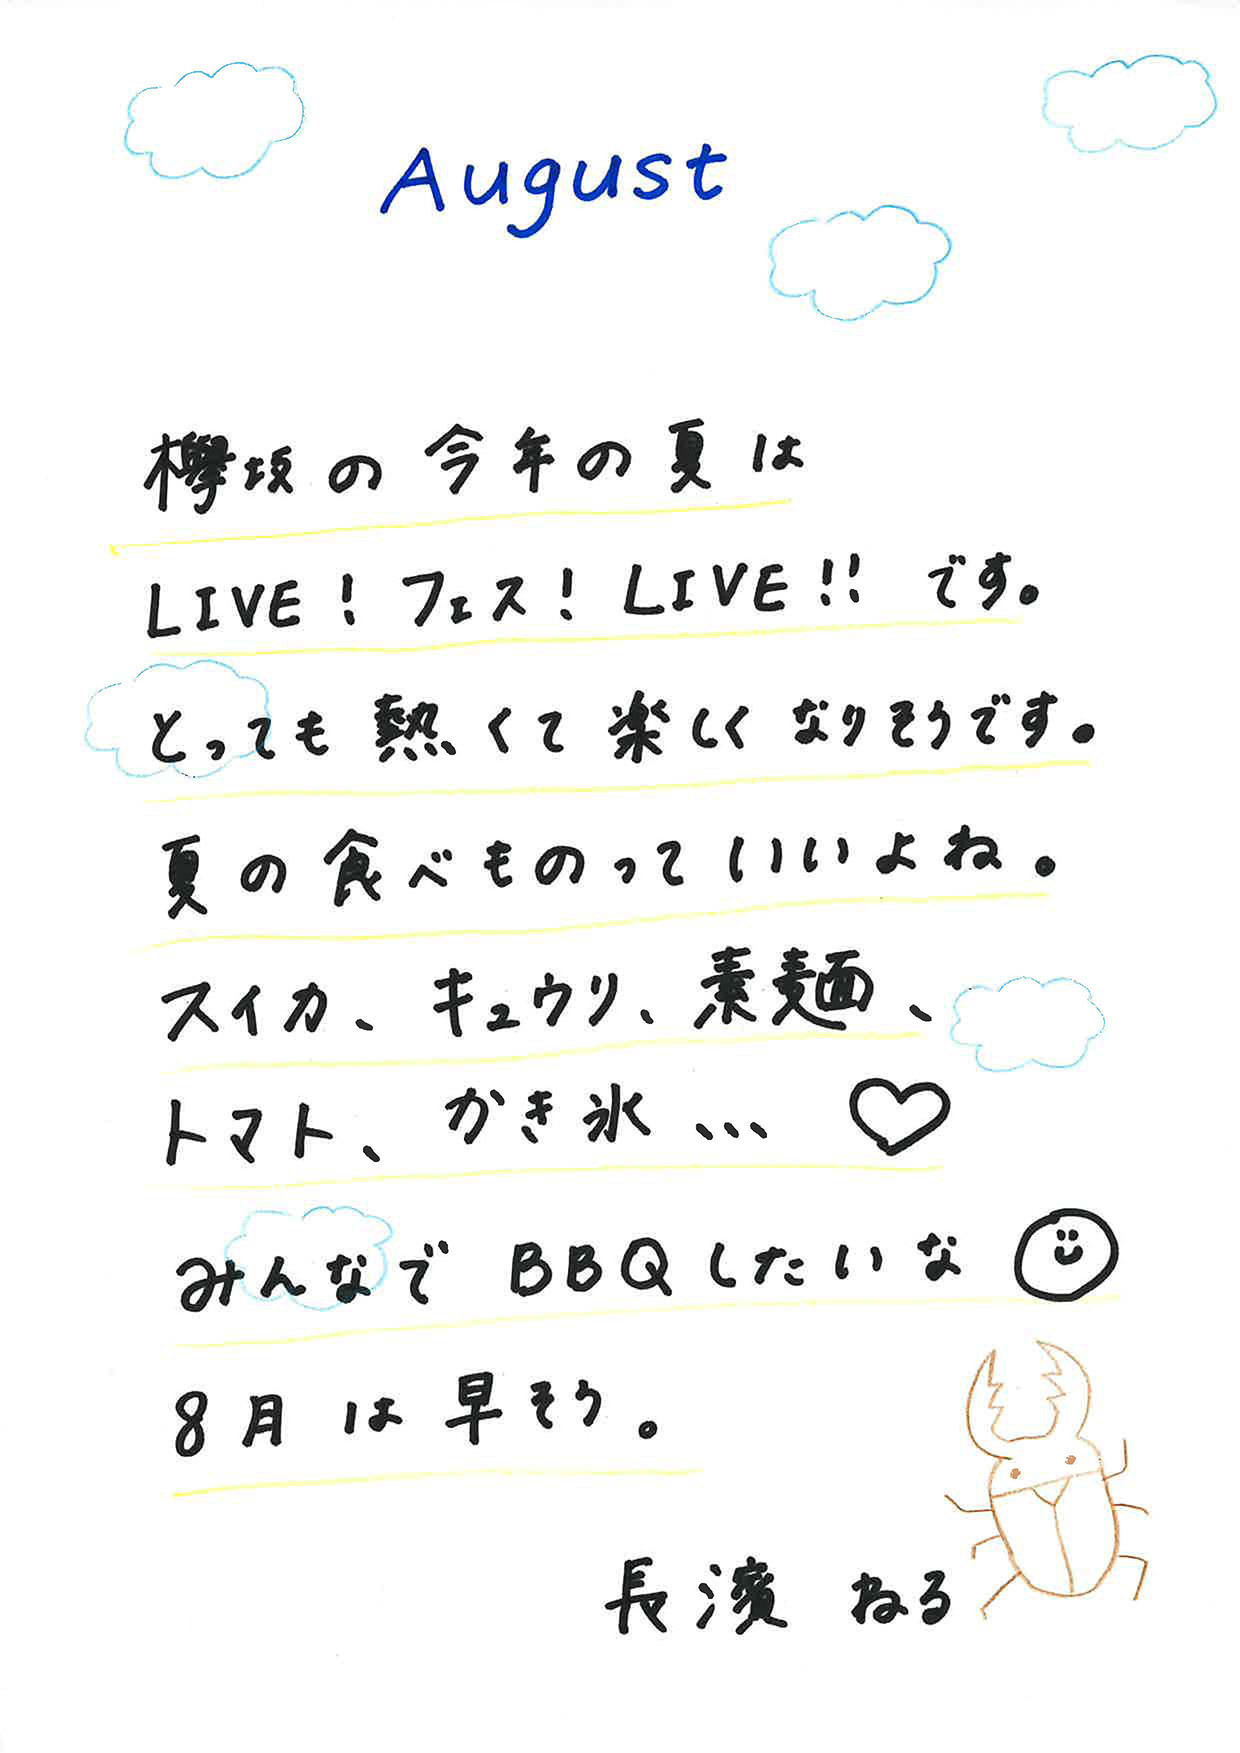 August
欅坂の今年の夏は
LIVE！フェス！LIVE!! です。
とっても熱くて楽しくなりそうです。
夏の食べものっていいよね。
スイカ、キュウリ、素麺、
トマト、かき氷、、、♡
みんなでBBQしたいな
8月は早そう。
長濱 ねる